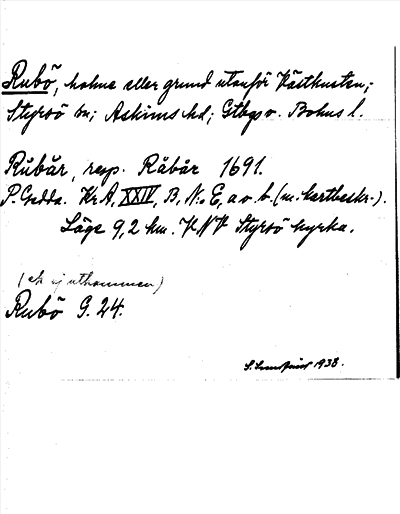 Rubö, holme eller grund utanför Västkusten;
Styrsö sn; Askims hd; Gtbgs o. Bohus l.
Rübår, resp. Råbår 1691.
P. Gedda. Kr A, XXIV, B, N:o E, a o. b. (m. kartbeskr.).
Läge 9,2 km. VNV Styrsö kyrka.
(ek ej utkommen)
Rubö G. 24.
1938.